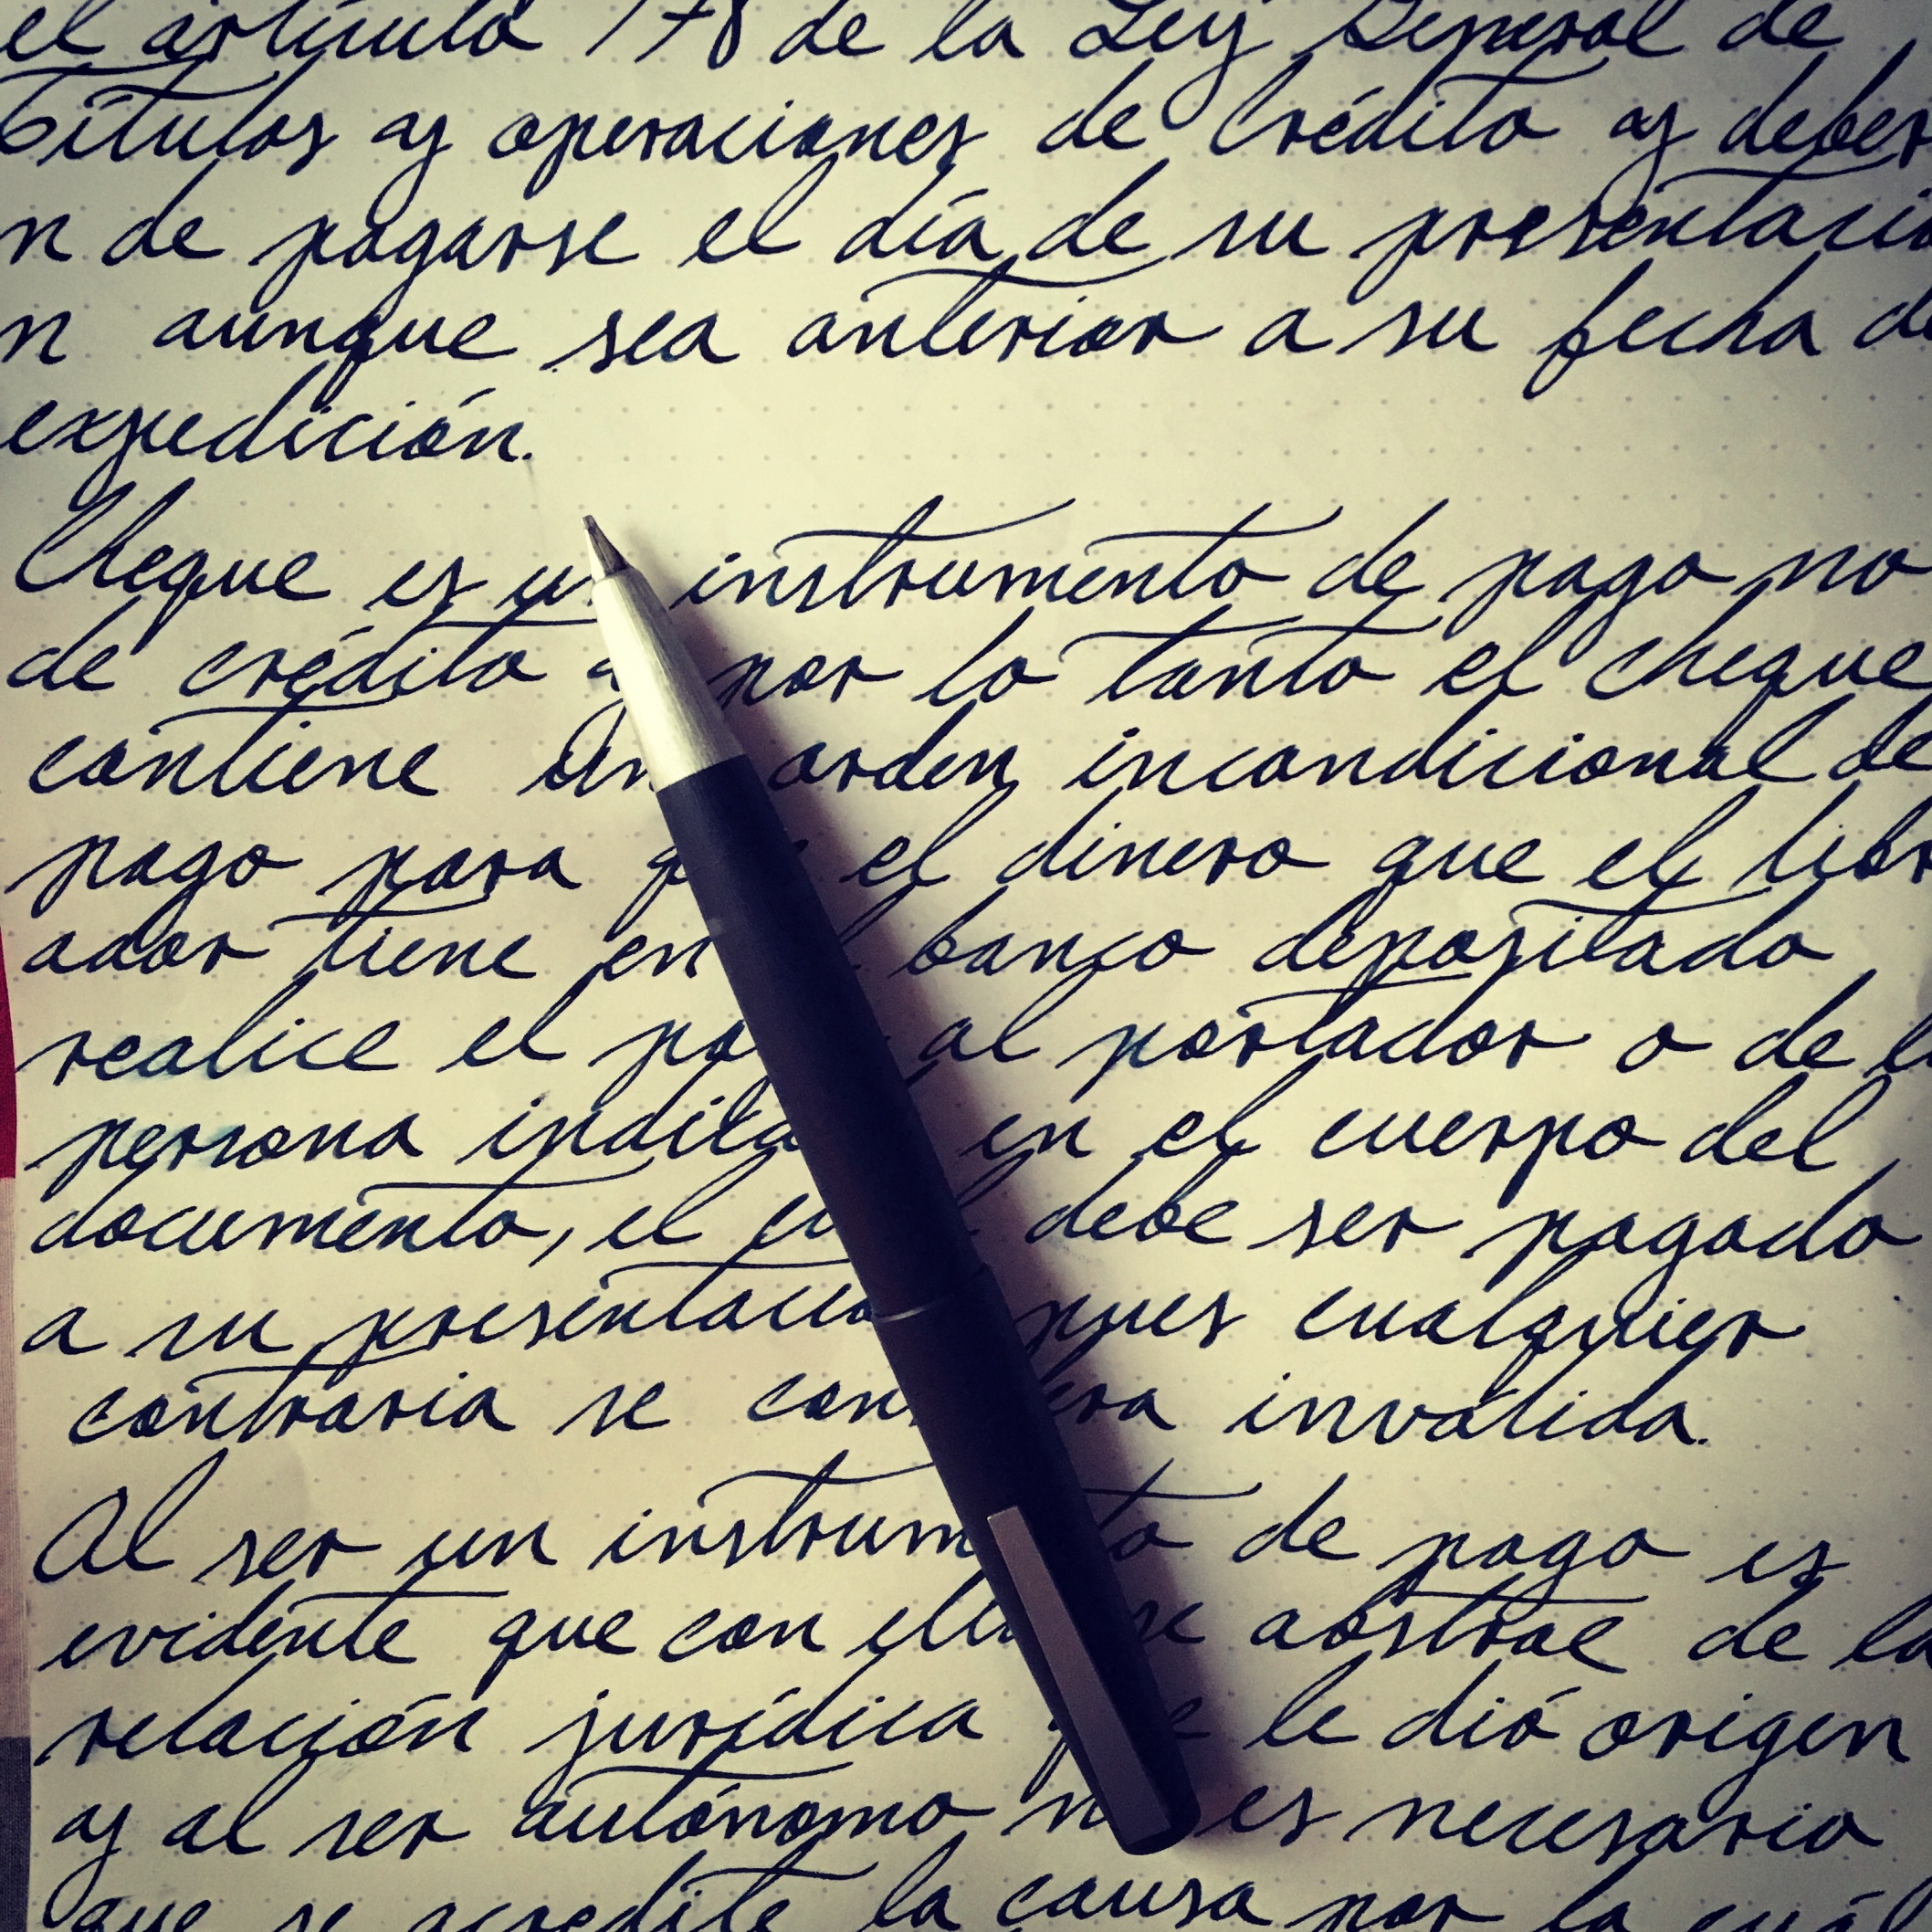 el artículo 178 de la Ley General de
Títulos y operaciones de Crédito y deber
n de pagarse el día de su presentació
n aunque sea anterior a su fecha de
expedición.
Cheque es un instrumento de pago no
de crédito y por lo tanto el cheque
contiene un orden incondicional de
pago para el dinero que el libr
ador tiene en banco depositado
realice el al portador o de l
persona en el cuerpo del
documento, el debe ser pagado
a su pues cualquier
contraria se inválida.
Al ser un de pago es
evidente que con se abstrae de la
relación jurídica le dió origen
y al ser autónomo es necesario
que se acredite la causa por la cuál